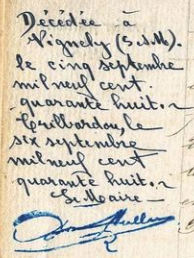 Décédée à
Vignely (S.&M.).
le cinq septembre
mil neuf cent
quarante huit.
Trilbardou, le
six septembre
mil neuf cent
quarante huit.
Le Maire